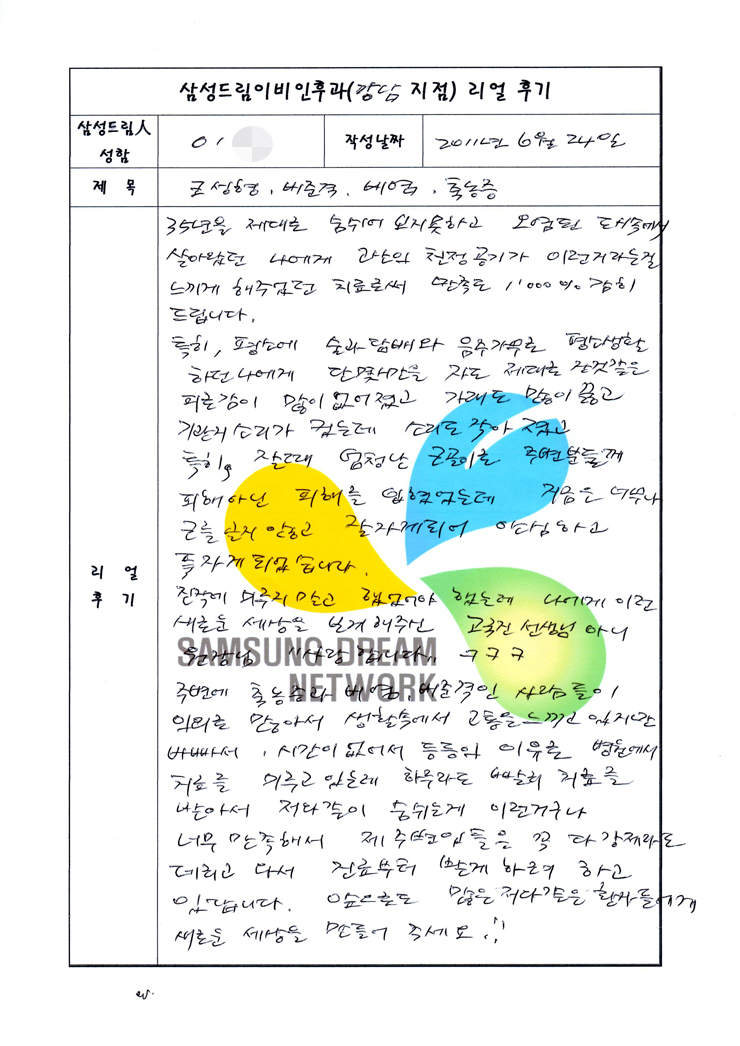 삼성드림이비인후과(강남 지점) 리얼 후기
삼성드림人 성함
이
작성날짜
2011년 6월 24일
제 목
코성형, 비중격, 비염, 축농증
리 얼 후 기
35년을 제대로 숨쉬어 보지못하고 오염된 도시속에서
살아왔던 나에게 강산의 천정공기가 이런거라는걸
느끼게 해주었던 치료로써 만족도 1,000% 감히
드립니다.
특히, 평상에 술과담배와 음주가무로 평상생활
하던나에게 단 몇시간을 자도 제대로 잔것같은
피로감이 많이 없어졌고 가래도 많이 끓고
기관지소리가 컸는데 소리도 작아 졌고
특히, 잘때 엄청난 코골이로 주변분들께
피해아닌 피해를 입혔었는데 지금은 너무나
코를 골지 않고 잘자게되어 안심하고
푹자게 되었습니다.
진작에 미루지 말고 했었어야 했는데 나에게 이런
새로운 세상을 보게해주신 고국진 선생님 아니
원장님 "사랑합니다" ㅋㅋㅋ
주변에 축농증과 비염, 비중격인 사람들이
의외로 많아서 생활속에서 고통을느끼고 있지만
바빠서, 시간이없어서 등등의 이유로 병원에서
치료를 미루고 있는데 하루라도 빨리 치료를
받아서 저와같이 숨쉬는게 이런거구나
너무 만족해서 제 주변인들은 꼭 다 강제라도
데리고 와서 진료부터 받게 하려 하고
있답니다. 앞으로도 많은 저와같은 환자들에게
새로운 세상을 만들어 주세요.!!
SAMSUNG DREAM
NETWORK